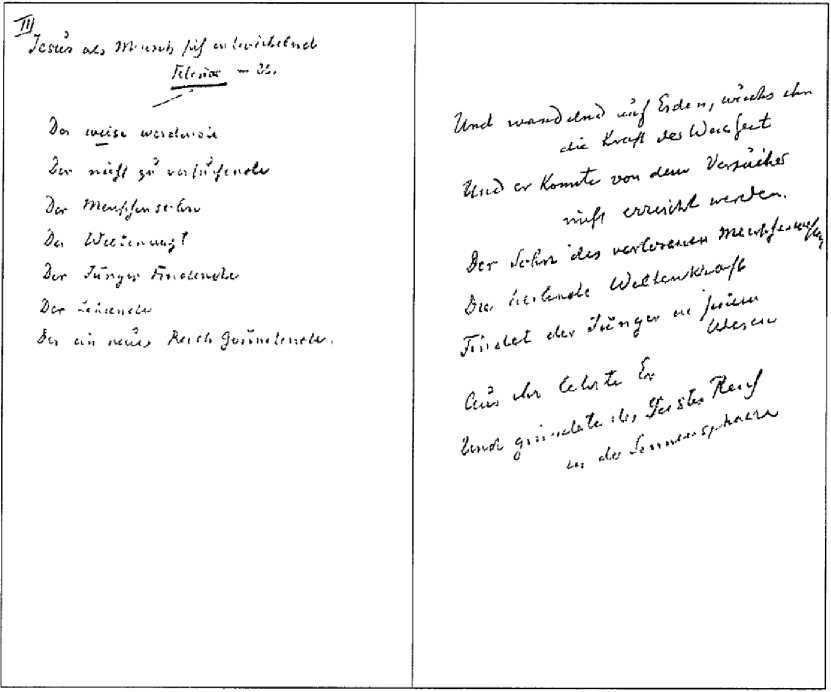 III
Jesus als Mensch sich entwickelnd
Der weise werdende
Der nicht zu versuchende
Der Menschensohn
Der Weltenarzt
Der Jünger Findende
Der Lehrende
Der ein neues Reich Gründende.
Und wandelnd auf Erden, wuchs ihm
die Kraft der Weisheit
Und er konnte von dem Versucher
nicht erreicht werden.
Der Sohn des verlorenen Menschenwesens
Die heilende Weltenkraft
Findet der Jünger in seinem
Wesen
Aus ihr lehrte Er
Und gründete des Geistes Reich
in der Sonnensphaere